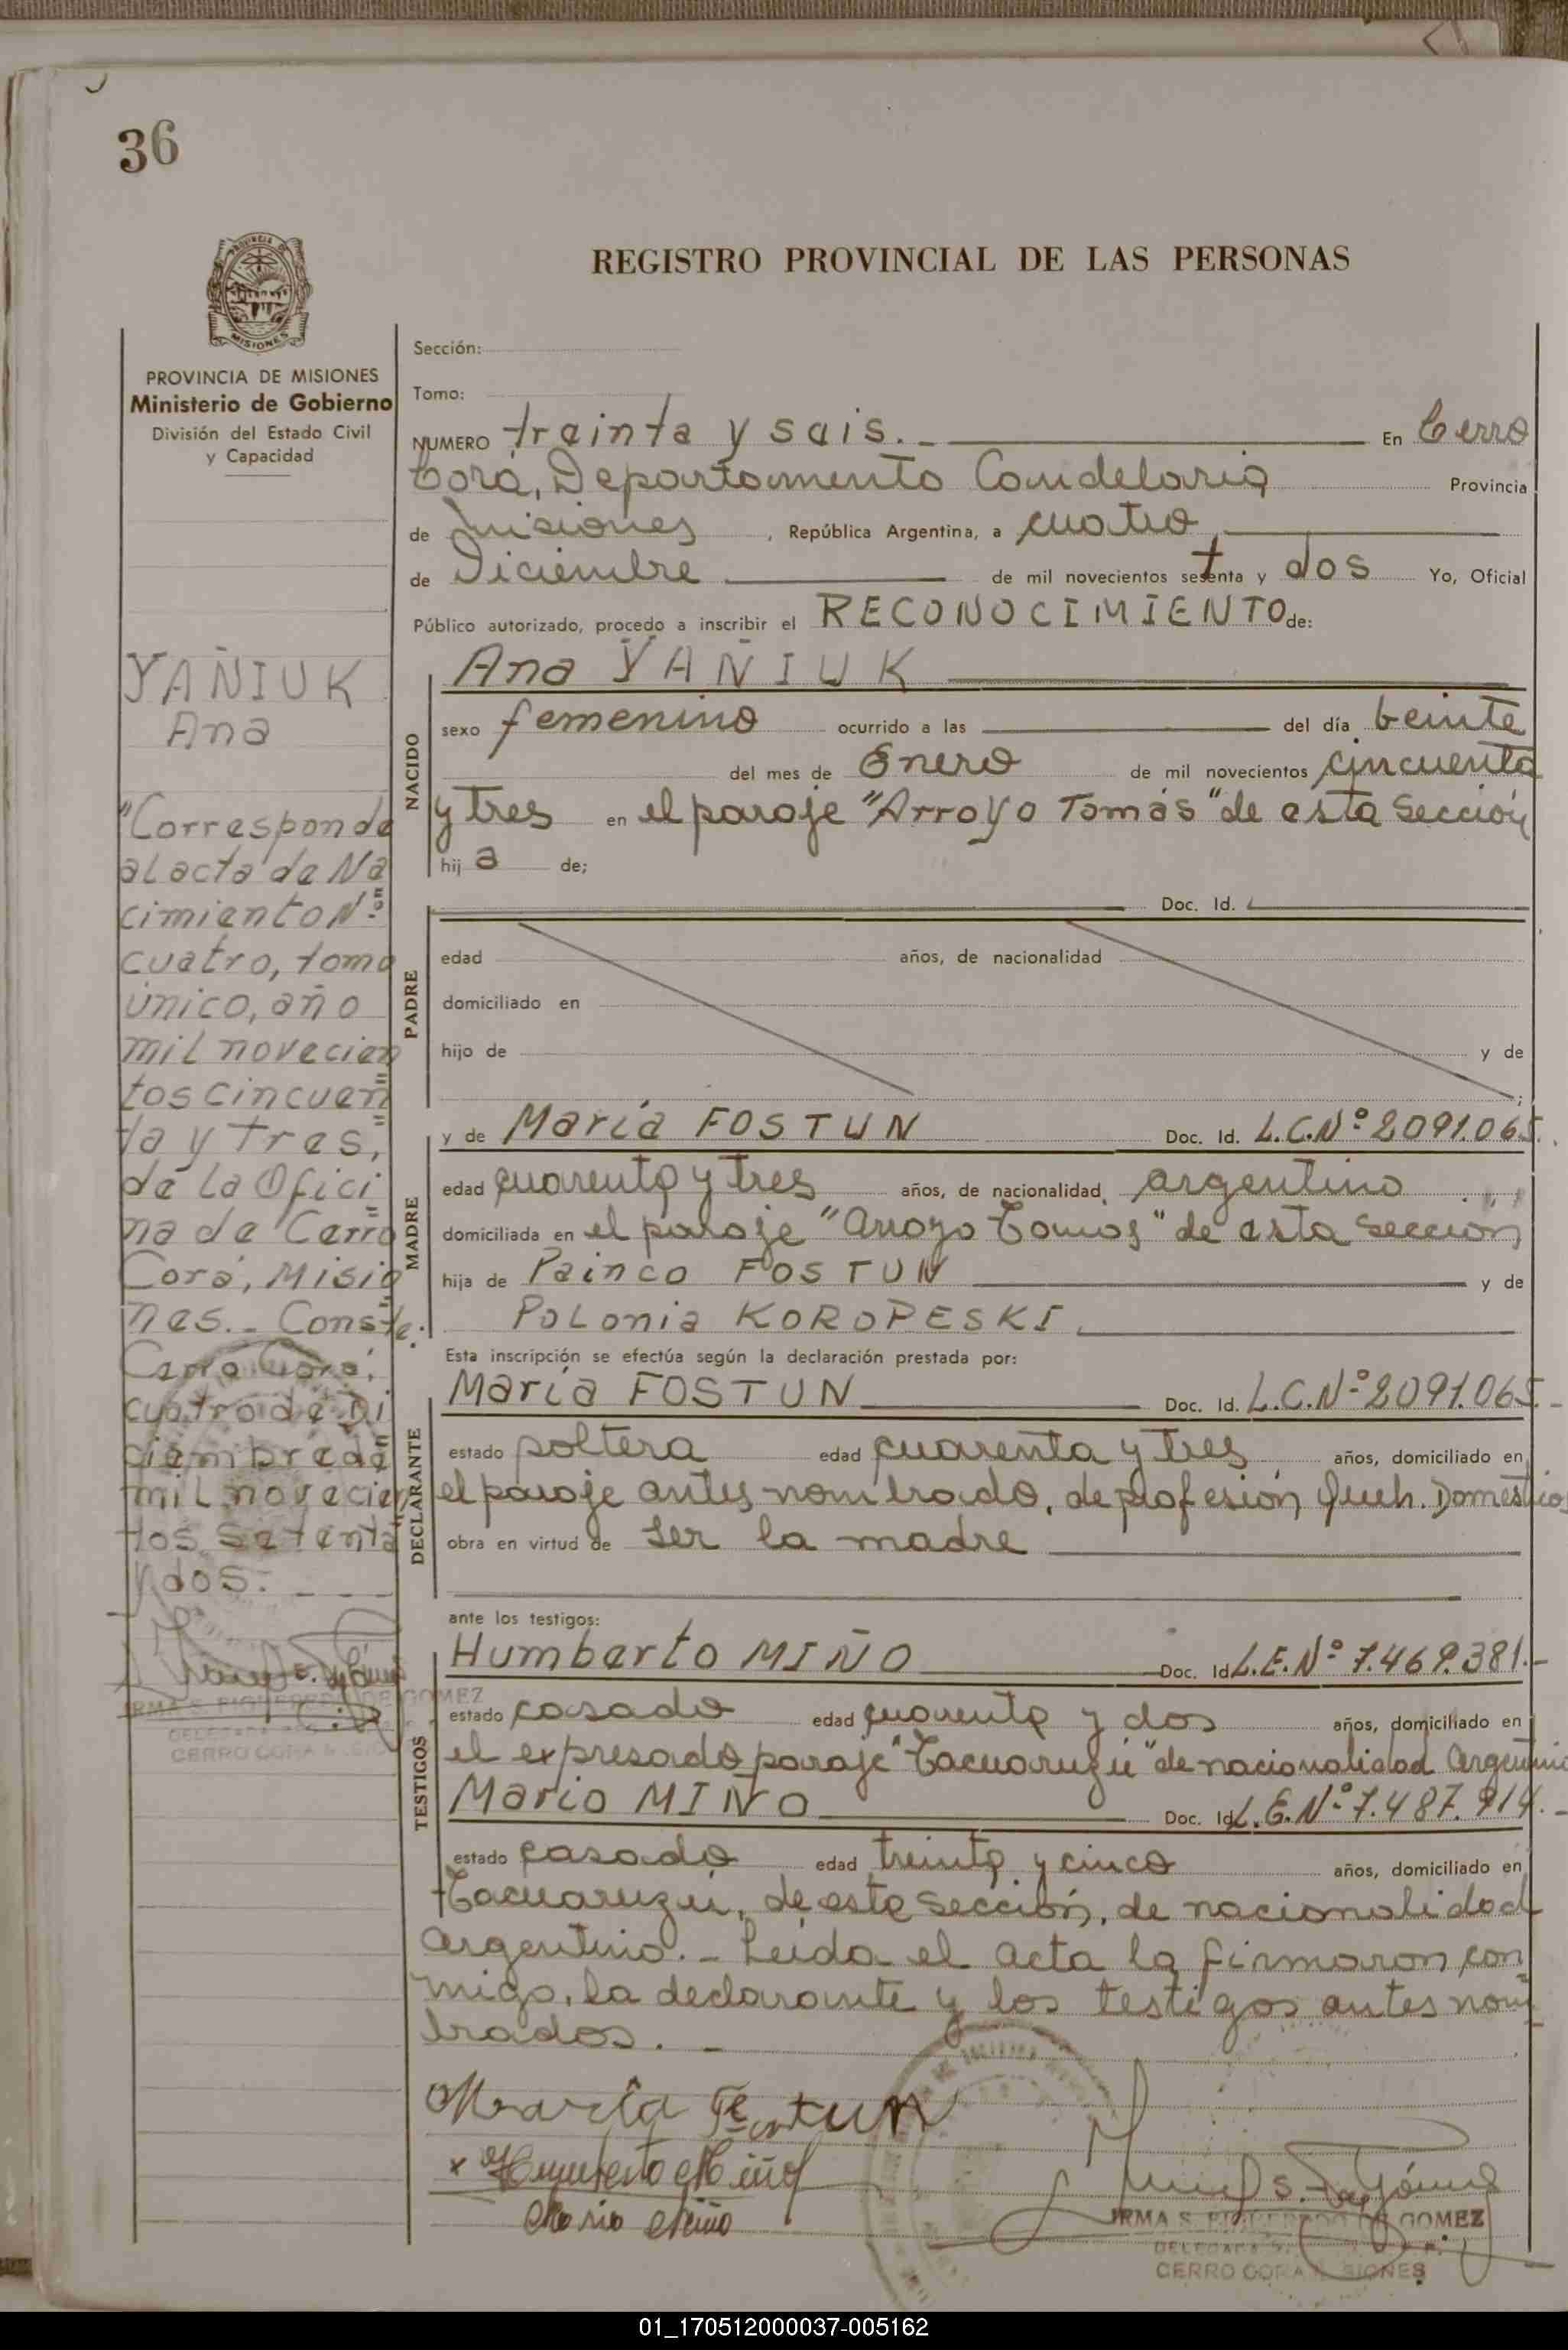 36
REGISTRO PROVINCIAL DE LAS PERSONAS
MISIONES
PROVINCIA DE MISIONES
Ministerio de Gobierno
División del Estado Civil
y Capacidad
YAÑIUK
Ana
"Corresponde
al acta de Na
cimiento Nº
cuatro, tomo
único, año
mil novecien
tos cincuen
ta y tres,
de la Ofici
na de Cerro
Corá, Misio
nes._ Conste.
Cerro Corá,
cuatro de Di
ciembre de
mil novecien
tos setenta
y dos. _ _ _
IRMA S. FIGUEREDO DE GOMEZ
DELEGADA
CERRO CORA MISIONES
Sección:
Tomo:
NUMERO treinta y seis._ En Cerro
Corá, Departamento Candelaria Provincia
de Misiones, República Argentina, a cuatro
de Diciembre de mil novecientos setenta y dos Yo, Oficial
Público autorizado, procedo a inscribir el RECONOCIMIENTO de:
NACIDO
Ana YAÑIUK
sexo femenino ocurrido a las del día beinte
del mes de Enero de mil novecientos cincuenta
y tres en el paraje "Arroyo Tomás" de esta Sección
hij a de;
PADRE
Doc. Id.
edad años, de nacionalidad
domiciliado en
hijo de y de
;
MADRE
y de María FOSTUN Doc. Id. L.C.Nº 2.091.065.
edad cuarenta y tres años, de nacionalidad argentino
domiciliada en el paraje "Arroyo Tomás" de esta sección
hija de Painco FOSTUN y de
Polonia KOROPESKI
Esta inscripción se efectúa según la declaración prestada por:
DECLARANTE
María FOSTUN Doc. Id. L.C.Nº 2.091.065._
estado soltera edad cuarenta y tres años, domiciliado en
el paraje antes nombrado, de profesión Queh. Domésticos
obra en virtud de ser la madre
ante los testigos:
TESTIGOS
Humberto MIÑO Doc. Id. L.E.Nº 7.469.381._
estado casado edad cuarenta y dos años, domiciliado en
el expresado paraje "Tacuaruzú" de nacionalidad Argentino
Mario MIÑO Doc. Id. L.E.Nº 7.487.914._
estado casado edad treinta y cinco años, domiciliado en
Tacuaruzú, de esta sección, de nacionalidad
argentino._ Leída el acta la firmaron con
migo, la declarante y los testigos antes nom
brados. _
María Fostun
x Humberto Miño
Mario Miño
IRMA S. FIGUEREDO DE GOMEZ
DELEGADA
CERRO CORA MISIONES
01_170512000037-005162